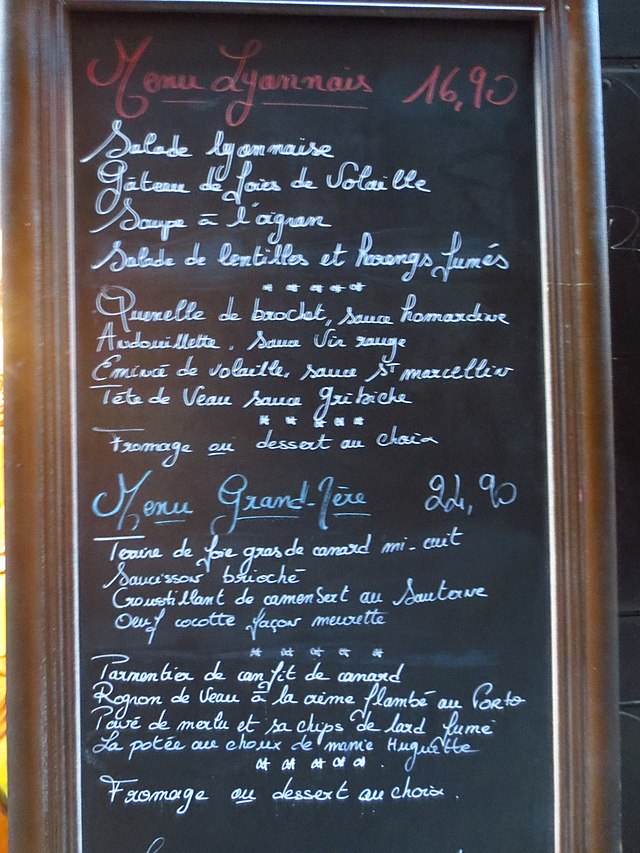 Menu Lyonnais 16,90
Salade lyonnaise
Gâteau de foies de Volaille
Soupe à l'oignon
Salade de lentilles et harengs fumés
*****
Quenelle de brochet, sauce homardine
Andouillette, sauce Vin rouge
Emincé de volaille, sauce St marcellin
Tête de Veau sauce Gribiche
*****
Fromage ou dessert au choix
Menu Grand-Mère 24,90
Terrine de foie gras de canard mi-cuit
Saucisson brioché
Croustillant de camembert au Sauterne
Oeuf cocotte façon meurette
*****
Parmentier de confit de canard
Rognon de Veau à la crème flambé au Porto
Pavé de merlu et sa chips de lard fumé
La potée au choux de mamie Huguette
*****
Fromage ou dessert au choix.